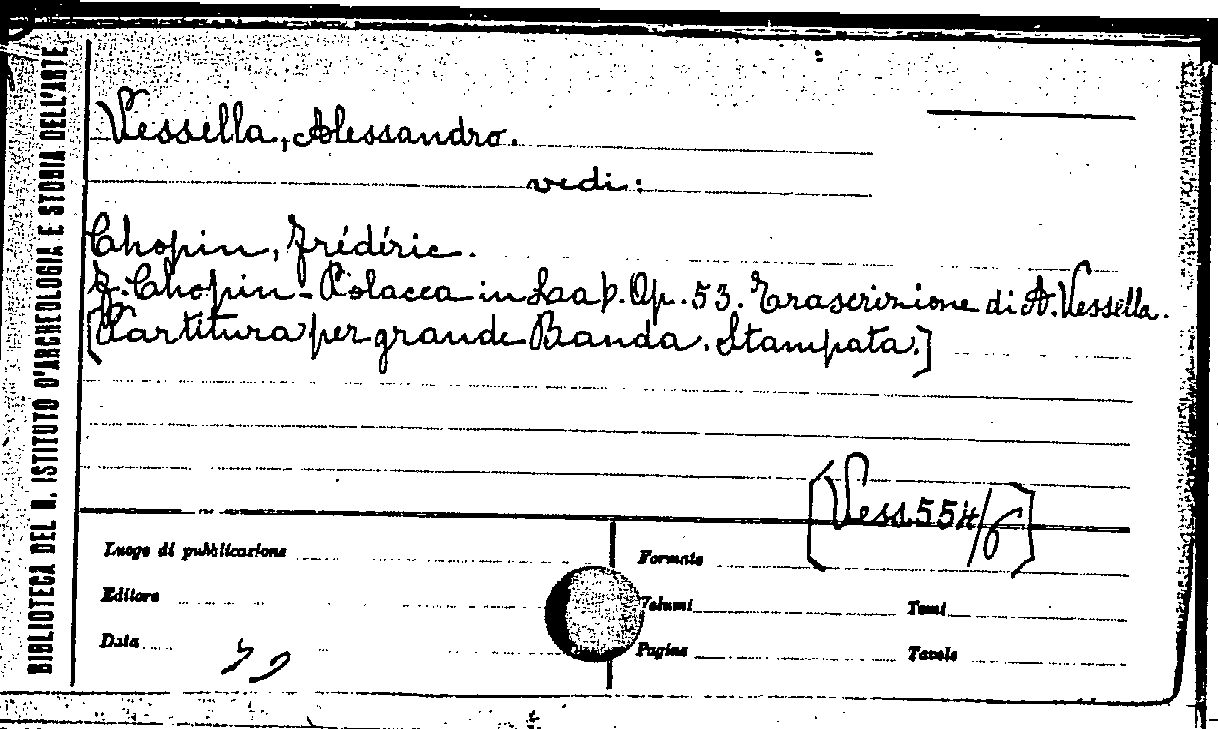 BIBLIOTECA DEL R. ISTITUTO D'ARCHEOLOGIA E STORIA DELL'ARTE
Vessella, Alessandro.
vedi:
Chopin, Frédéric.
F. Chopin - Polacca in La b. Op. 53. Trascrizione di A. Vessella.
[Partitura per grande Banda. Stampata.]
[Vess. 554/6]
Luogo di pubblicazione
Formato
Editore
Volumi
Tomi
Data
Pagine
Tavole